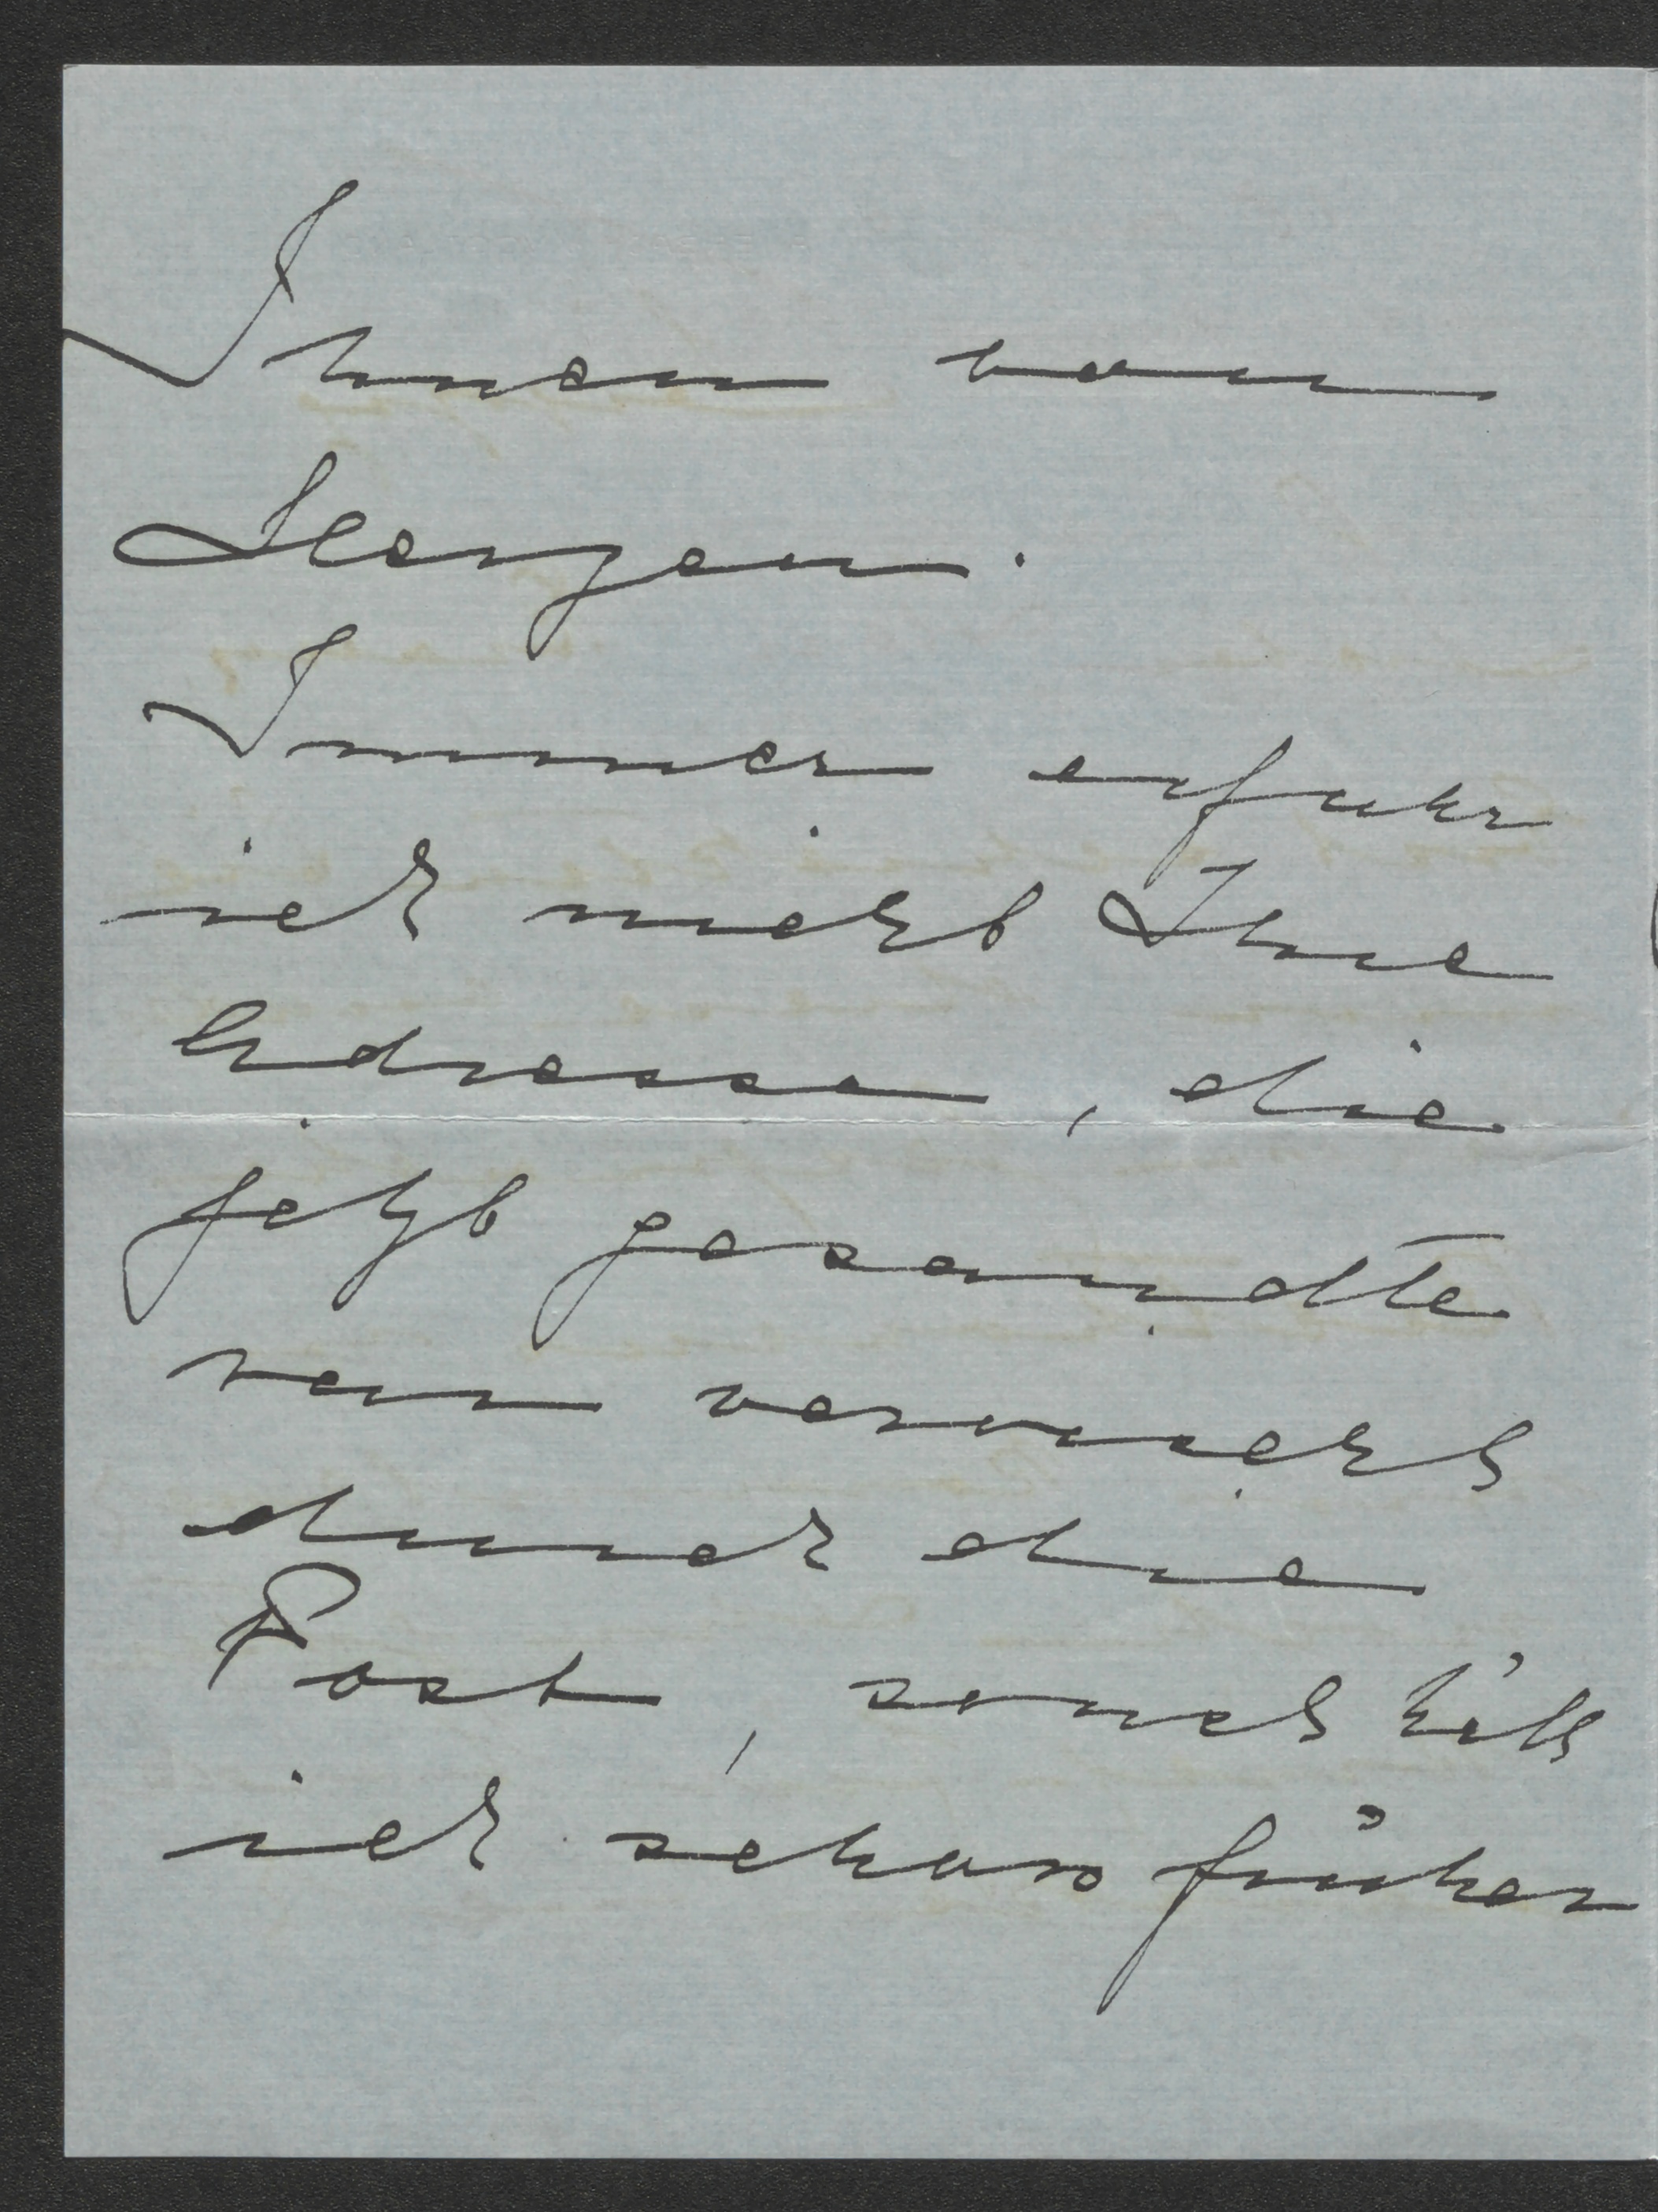 Ihnen von
Herzen.
Immer erfuhr
ich nicht Ihre
Adresse, die
jetzt gesandte
verwischt
durch die
Post, sonst hätt
ich schon früher